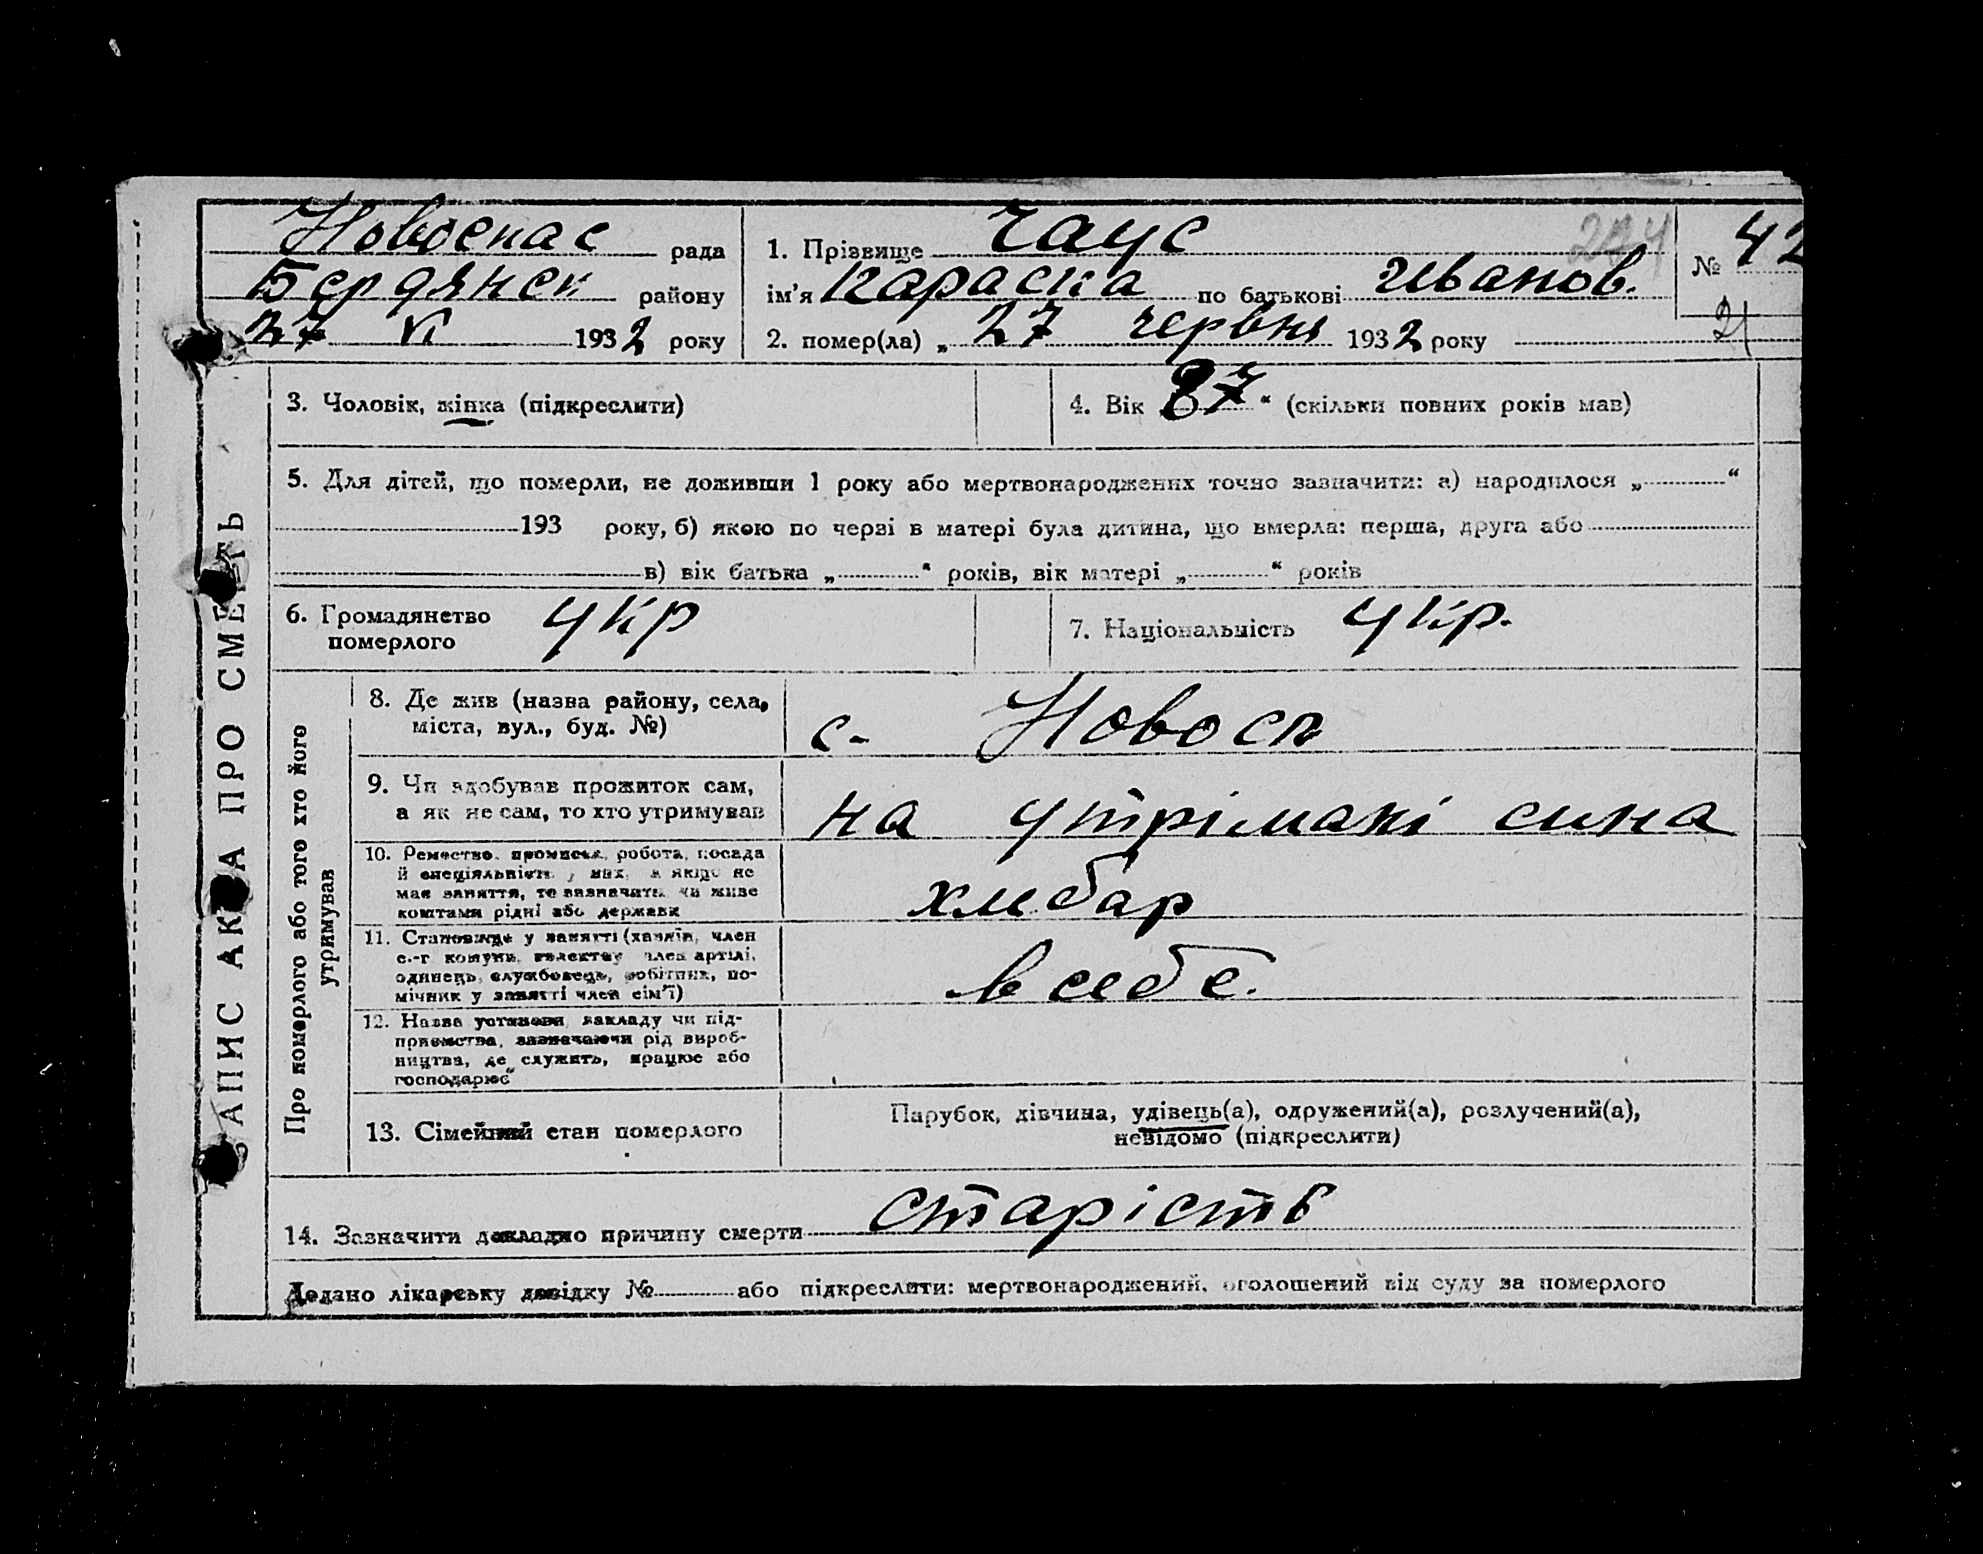 Новоспас рада
Бердянськ району
27 VI 1932 року
1. Прізвище Чаус
ім'я Параска по батькові Иванов.
2. помер(ла) „ 27 червня 1932 року
274
№ 42
21
3. Чоловік, жінка (підкреслити)
4. Вік 87 “ (скільки повних років мав)
5. Для дітей, що померли, не доживши 1 року або мертвонароджених точно зазначити: а) народилося „ “
193 року, б) якою по черзі в матері була дитина, що вмерла: перша, друга або
в) вік батька „ “ років, вік матері „ “ років
6. Громадянство
померлого
укр
7. Національність укр.
ЗАПИС АКТА ПРО СМЕРТЬ
Про померлого або того хто його
утримував
8. Де жив (назва району, села,
міста, вул., буд. №)
с. Новосп
9. Чи здобував прожиток сам,
а як не сам, то хто утримував
на утрімані сина
10. Ремество, промисел, робота, посада
й спеціяльність у них, а якщо не
має заняття, то зазначити чи живе
коштами рідні або держави
хлебар
11. Становище у занятті (хазяїн, член
с.-г комуни, колективу член артілі,
одинець, службовець, робітник, по-
мічник у занятті член сім'ї)
в себе.
12. Назва установи, закладу чи під-
приємства, зазначаючи рід вироб-
ництва, де служить, працює або
господарює
13. Сімейний стан померлого
Парубок, дівчина, удівець(а), одружений(а), розлучений(а),
невідомо (підкреслити)
14. Зазначити докладно причину смерти старість
Додано лікарську довідку № або підкреслити: мертвонароджений, оголошений від суду за померлого